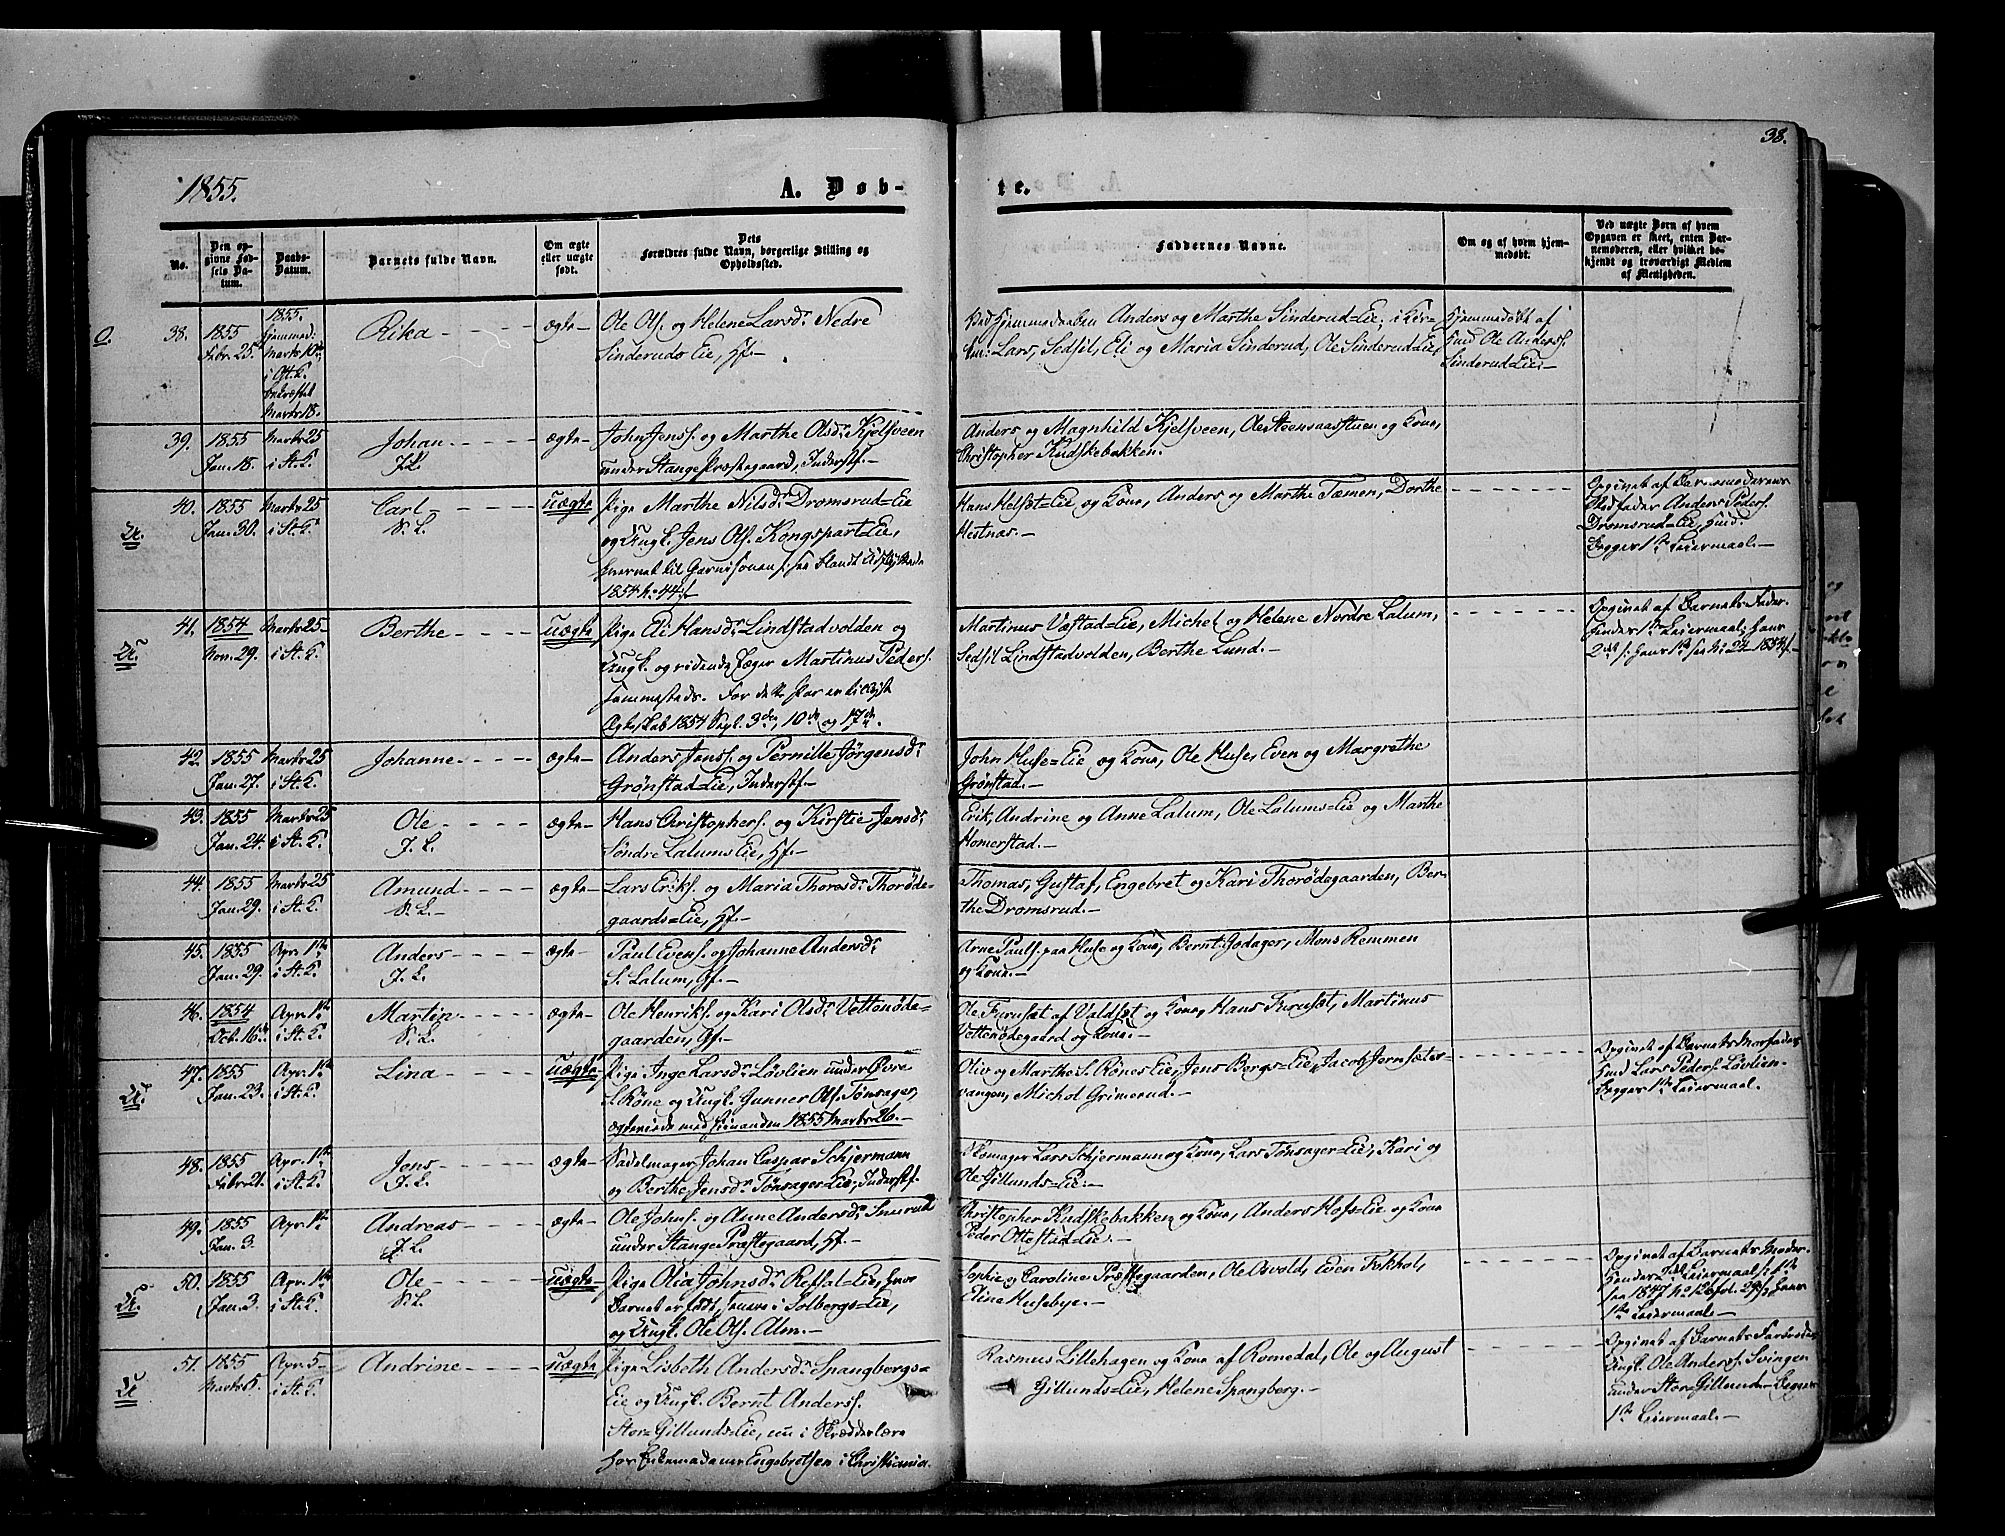 38.
1855.
A. Døb-
te.
No.
Den op-
givne Fød-
sels Da-
tum.
Daabs-
Datum.
Barnets fulde Navn.
Om ægte
eller uægte
født.
Dets
Forældres fulde Navn, borgerlige Stilling og
Opholdssted.
Faddernes Navne.
Om og af hvem hjem-
medøbt.
Ved uægte Børn af hvem
Opgaven er skeet, enten Bar-
nemoderen, eller hvilket be-
kjendt og troværdigt Medlem
af Menigheden.
38. 1855 Febr. 25.
1855. hjemmed. Marts 10de i St. K. bekræftet Marts 18.
Rika
ægte
Ole Ols. og Helene Larsdr. Nedre
Sinderuds Eie, Hf.
Ved Hjemmedaaben Anders og Marthe Sinderud=Eie; i Kir-
ken: Lars, Sedsil, Eli og Maria Sinderud, Ole Sinderud=Eie,
Hjemmedøbt af
Hmd Ole Anders.
Sinderud=Eie.
39. 1855 Jan. 18.
Marts 25 i St. K.
Johan
ægte
John Jens. og Marthe Olsdr. Kjelsveen
under Stange Præstegaard, Inderstf.
Anders og Magnhild Kjelsveen, Ole Steensaastuen og Kone,
Christopher Kudskebakken.
40. 1855 Jan. 30.
Marts 25 i St. K.
Carl
uægte
Pige Marthe Nilsdr. Dromsrud=Eie
og Ungk. Jens Ols. Kongspart=Eie,
hvervet til Garnisonen
1854 No 44
Hans Helset=Eie og Kone, Anders og Marthe Tæmen, Dorthe
Hestnæs.
Opgivet af Barnemoderens
Stedfader Anders Peders.
Dromsrud=Eie, Hmd.
Begges 1ste Leiermaal.
41. 1854 Nov. 29.
Marts 25 i St. K.
Berthe
uægte
Pige Eli Hansdr. Lindstadvolden og
Ungk. og ridende Jæger Martinus Peders.
sammesteds.
Ægteskab 1854 Sept. 3die, 10de og 17de.
Martinus Vestad=Eie, Michel og Helene Nordre Lalum,
Sedsil Lindstadvolden, Berthe Lund.
Opgivet af Barnets Fader.
Hendes 1ste Leiermaal; hans
2det
42. 1855 Jan. 27.
Marts 25 i St. K.
Johanne
ægte
Anders Jens. og Pernille Jørgensdr.
Grønstad=Eie, Inderstf.
John Huse=Eie og Kone, Ole Huse, Even og Margrethe
Grønstad.
43. 1855 Jan. 24.
Marts 25 i St. K.
Ole
ægte
Hans Christophers. og Kirstie Jensdr.
Søndre Lalums Eie, Hf.
Erik, Andrine og Anne Lalum, Ole Lalums=Eie og Marthe
Homerstad.
44. 1855 Jan. 29.
Marts 25 i St. K.
Amund
ægte
Lars Eriks. og Maria Thoresdr. Thorøde-
gaards=Eie, Hf.
Thomas, Gustaf, Engebret og Kari Thorødegaarden, Ber-
the Dromsrud.
45. 1855 Jan. 29.
Apr. 1ste i St. K.
Anders
ægte
Paul Evens. og Johanne Andersdr.
S. Lalum, Gf.
Arne Pauls. paa Huse og Kone, Bernt Godager, Mons Remmen
og Kone.
46. 1854 Oct. 16de
Apr. 1ste i St. K.
Martin
ægte
Ole Henriks. og Kari Olsdr. Vettenøde-
gaarden, Gf.
Ole Furuset af Valdset og Kone, Hans Furuset, Martinus
Vettenødegaard og Kone.
47. 1855 Jan. 23.
Apr. 1ste i St. K.
Lina
uægte
Pige Inge Larsdr. Løvlien under Øvre
S. Røne og Ungk. Gunner Ols. Tønsager,
ægteviede med hinanden 1855 Marts 26.
Oliv og Marthe S. Rønes Eie, Jens Bergs=Eie, Jacob Jernsæter-
vangen, Michel Grimerud.
Opgivet af Barnets Morfader
Hmd Lars Peders. Løvlien.
Begges 1ste Leiermaal.
48. 1855 Febr. 21.
Apr. 1ste i St. K.
Jens
ægte
Sadelmager Johan Caspar Schjermann
og Berthe Jensdr. Tønsager=Eie, Inderstf.
Skomager Lars Schjermann og Kone, Lars Tønsager=Eie, Kari og
Ole Gillunds=Eie.
49. 1855 Jan. 3.
Apr. 1ste
Andreas
ægte
Ole Johns. og Anne Andersdr. Smerud
under Stange Præstegaard, Hf.
Christopher Kudskebakken og Kone, Anders Hofs=Eie og Kone
Peder Ottestad=Eie.
50. 1855 Jan. 3.
Apr. 1ste i St. K.
Ole
uægte
Pige Olia Johnsdr. Refsal=Eie, hvor
Barnet er født, senere i Solbergs=Eie,
og Ungk. Ole Ols. Alm.
Sophie og Caroline Præstegaarden, Ole Osvold, Even Fokhol,
Eline Husebye.
Opgivet af Barnets Moder.
Hendes 2det Leiermaal
1ste Leiermaal.
51. 1855 Marts 5.
Apr. 5 i St. K.
Andrine
uægte
Pige Lisbeth Andersdr. Spangbergs=
Eie og Ungk. Bernt Anders.
Stor=Gillunds=Eie, nu i Skrædderlære
hos Enkemadame Engebretsen i Christiania.
Rasmus Lillehagen og Kone af Romedal, Ole og August
Gillunds=Eie, Helene Spangberg.
Opgivet af Barnets Farbroder
Ungk. Ole Anders. Svingen
under Stor=Gillund. Begges
1ste Leiermaal.